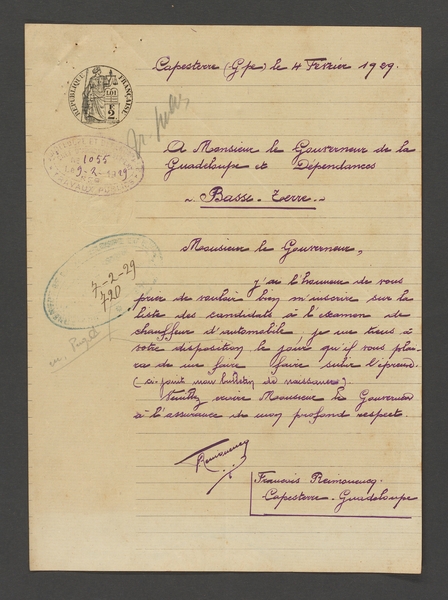 Capesterre (Gpe) le 4 Février 1929.
RÉPUBLIQUE FRANÇAISE
LOI
A Monsieur le Gouverneur de la
Guadeloupe et Dépendances
TRAVAUX PUBLICS
1055
9-2-1929
~ Basse-Terre ~
Monsieur le Gouverneur,
7-2-29
720
J'ai l'honneur de vous
prier de vouloir bien m'inscrire sur la
liste des candidats à l'examen de
chauffeur d'automobile, je me tiens à
votre disposition le jour qu'il vous plai-
ra de me faire faire subir l'épreuve.
(ci-joint mon bulletin de naissance).
Veuillez croire Monsieur le Gouverneur
à l'assurance de mon profond respect.
François Reimoneneq
Capesterre-Guadeloupe